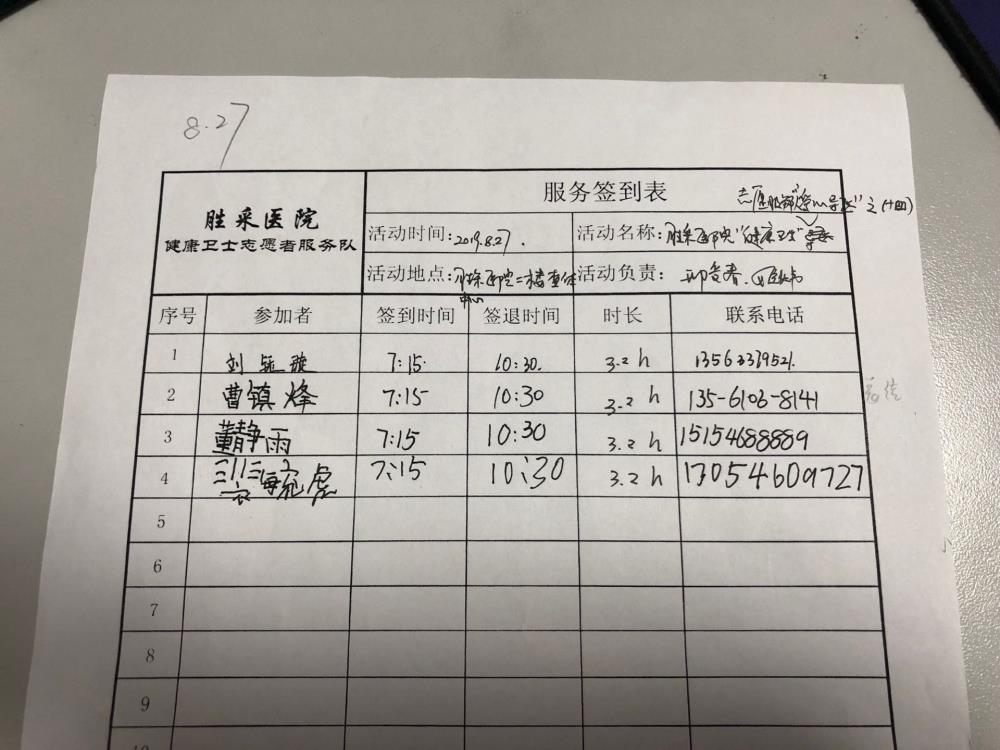 8.27
服务签到表
胜采医院
健康卫士志愿者服务队
志愿服务 之(十四)
活动时间:2019.8.27.
活动名称:胜采医院"健康卫士"
活动地点:胜采医院二楼查体中心
活动负责:
序号 参加者 签到时间 签退时间 时长 联系电话
1 刘 璇 7:15. 10:30. 3.2 h
2 曹镇烽 7:15 10:30 3.2 h 135-6106-8141
3 董静雨 7:15 10:30 3.2 h 15154688889
4 7:15 10:30 3.2 h 13054609727
5
6
7
8
9
10